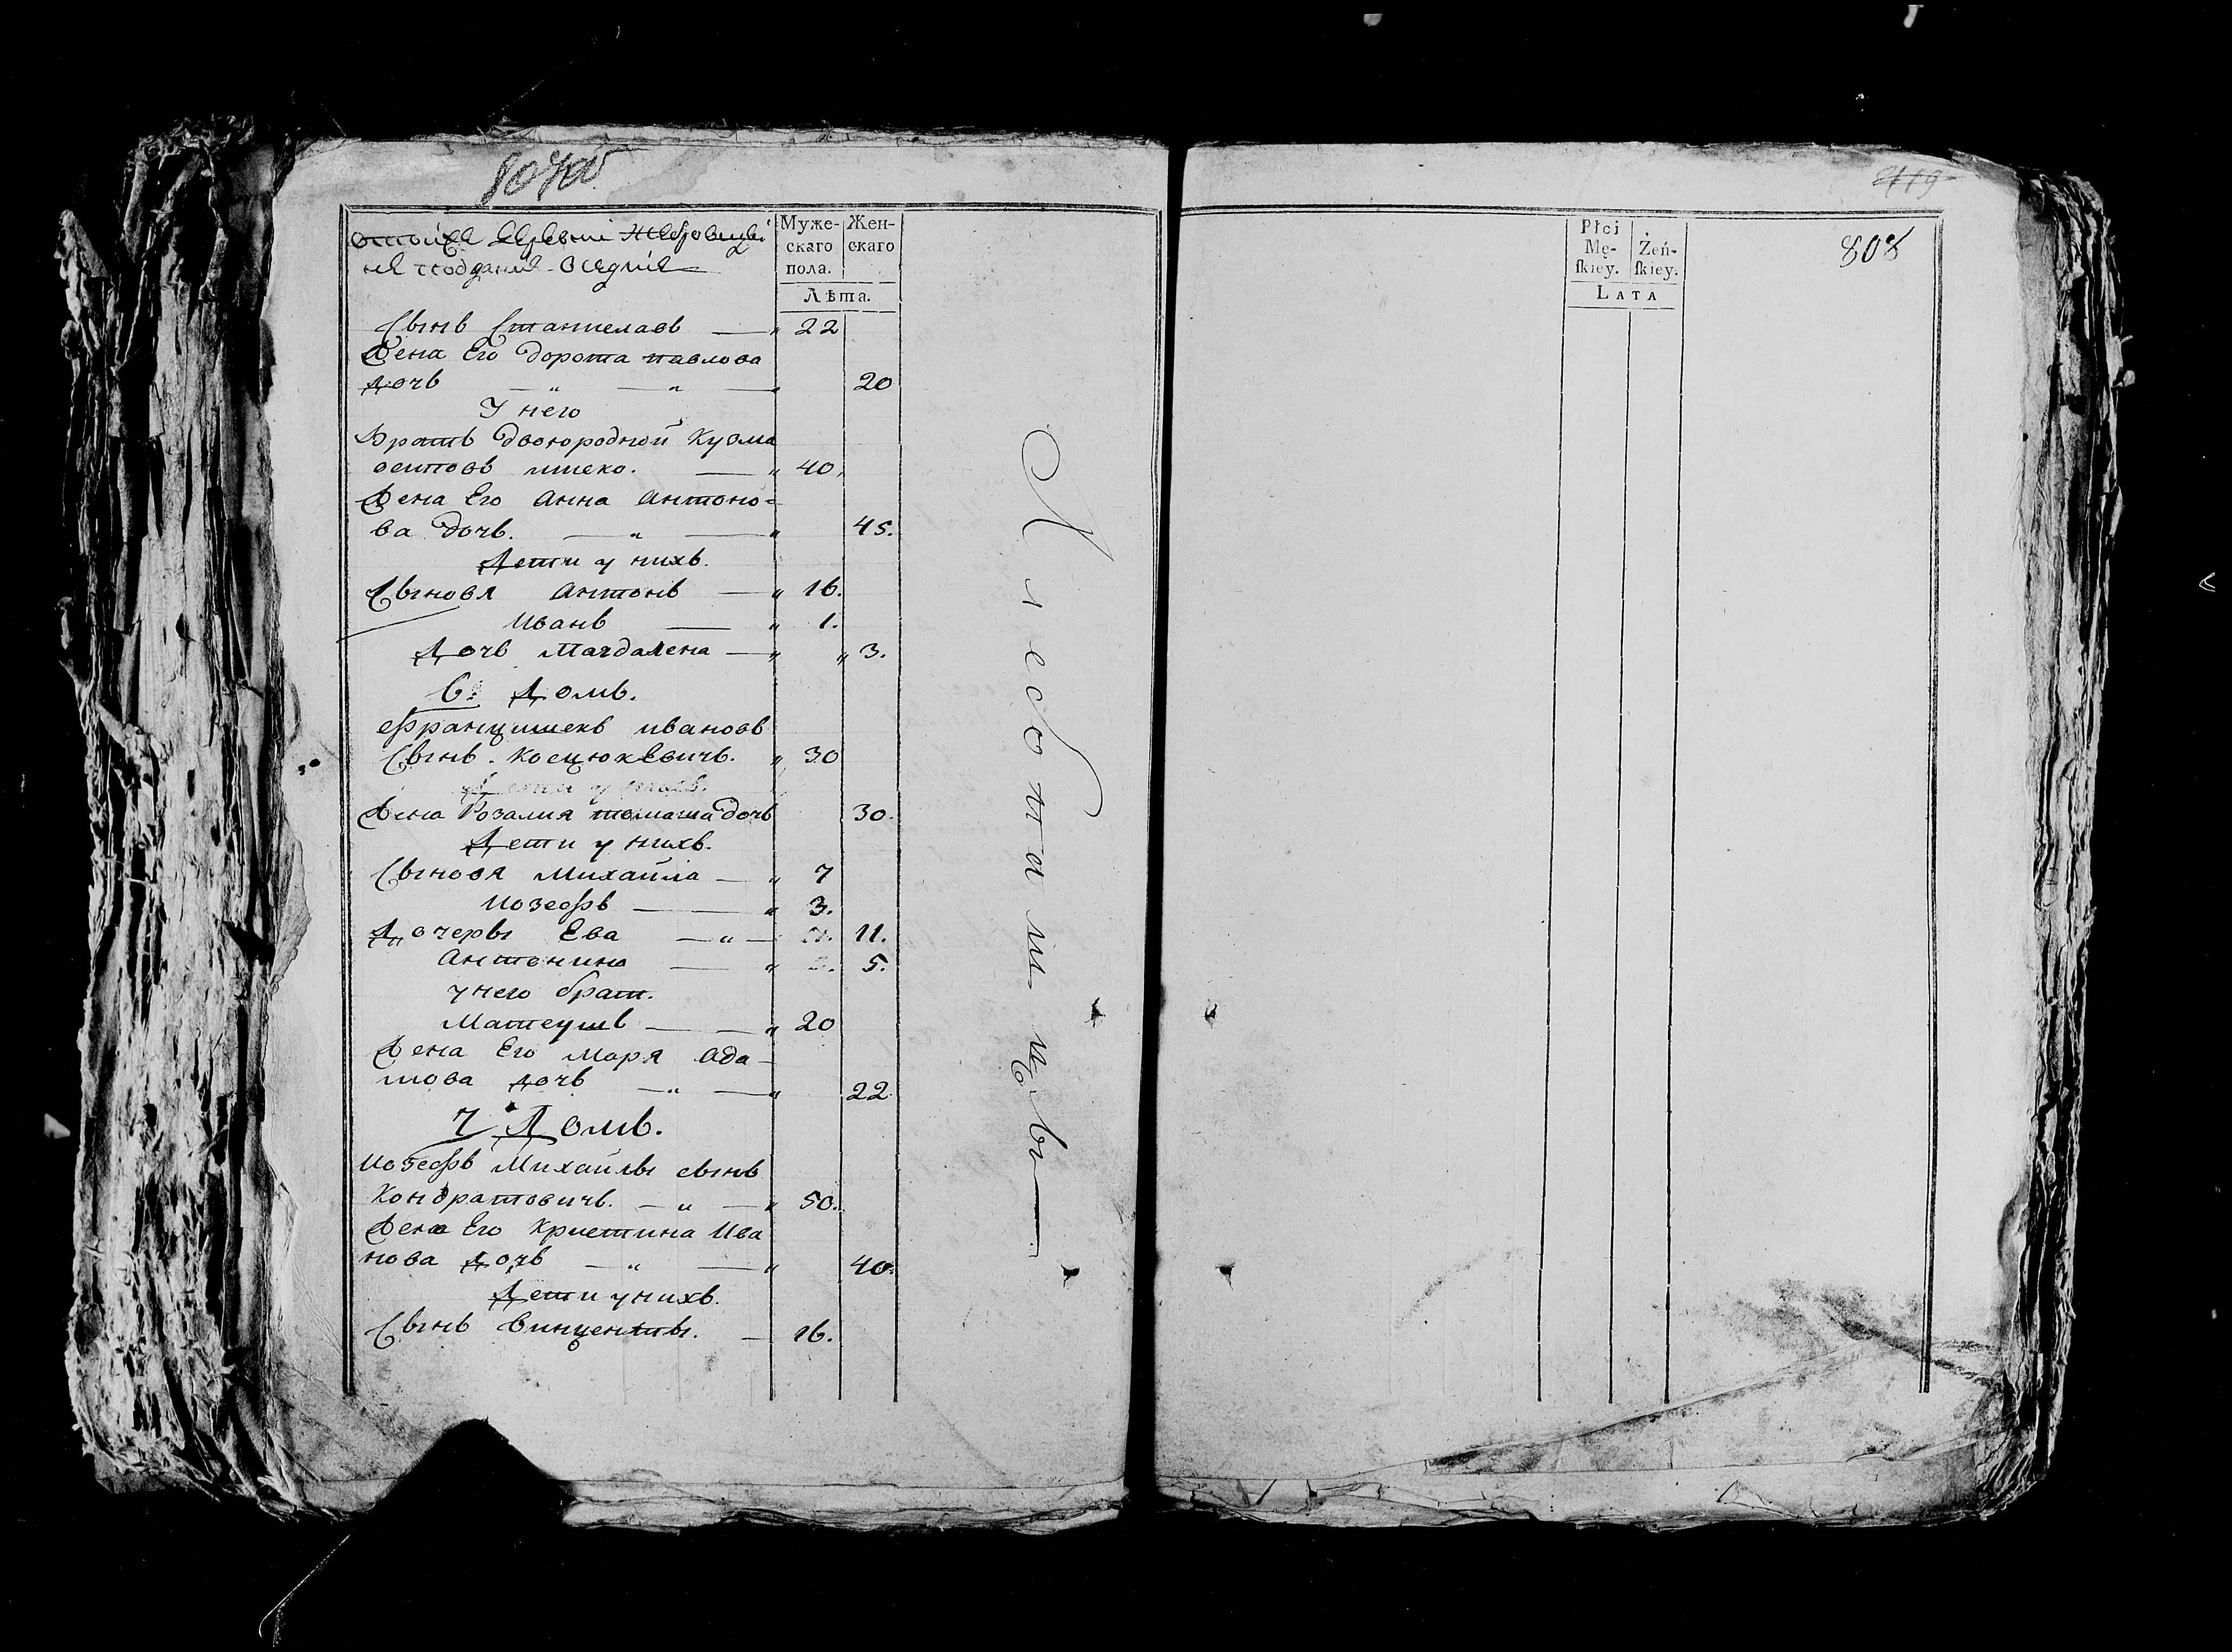 807об
тойже деревни Жебровщи
не подданые оседлые
Муже-
скаго
пола.
Жен-
скаго
Лѣта.
Сынъ Станиславъ — " 22
Жена Его Дорота павлова
Дочь — " — " — " 20
У него
Братъ двоюродной Кузма
40.
Жена Его Анна Антоно=
ва дочь. — " — " 45.
Дети у нихъ.
Сыновя Антонъ — " 16.
Иванъ — " 1.
Дочь Магдалена — " " 3.
6. Домъ.
Францишекъ ивановъ
Сынъ. Косцюкевичъ. " 30
Жена Розалия томаша дочь 30.
Дети у нихъ.
Сыновя Михайла — " 7
Иозефъ — " 3.
Дочеры Ева — " — 11.
Антонина — " 5.
у него брат.
Матеушъ — — " 20
Жена Его Маря Ада-
мова дочь — " — " 22
7 Домъ.
Иозефъ Михайлы сынъ
Кондратовичъ. — " — " 50.
Жена Его Кристина Ива
нова Дочь — " — " 40.
Дети у нихъ.
Сынъ Винценты. — 16.
Płci
Mę-
ſkiey.
Żeń-
ſkiey.
Lata
808